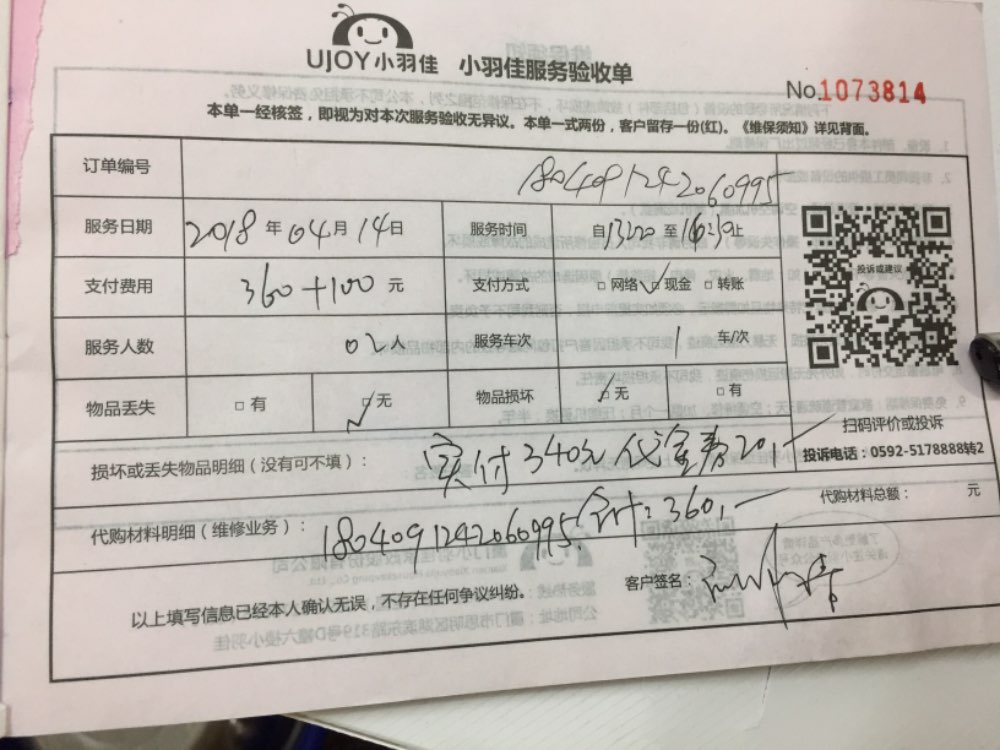 UJOY小羽佳 小羽佳服务验收单
No.1073814
本单一经核签，即视为对本次服务验收无异议。本单一式两份，客户留存一份(红)。《维保须知》详见背面。
订单编号 1804091242060995
服务日期 2018年04月14日 服务时间 自13:20至16:30止
支付费用 360+100元 支付方式 □网络 ☑现金 □转账
投诉或建议
服务人数 02人 服务车次 1 车/次
物品丢失 □有 ☑无 物品损坏 ☑无 □有
扫码评价或投诉
损坏或丢失物品明细（没有可不填）： 实付340元 代金券20,一
投诉电话：0592-5178888转2
代购材料明细（维修业务）： 1804091242060995. 合计：360,一 代购材料总额： 元
以上填写信息已经本人确认无误，不存在任何争议纠纷。 客户签名：